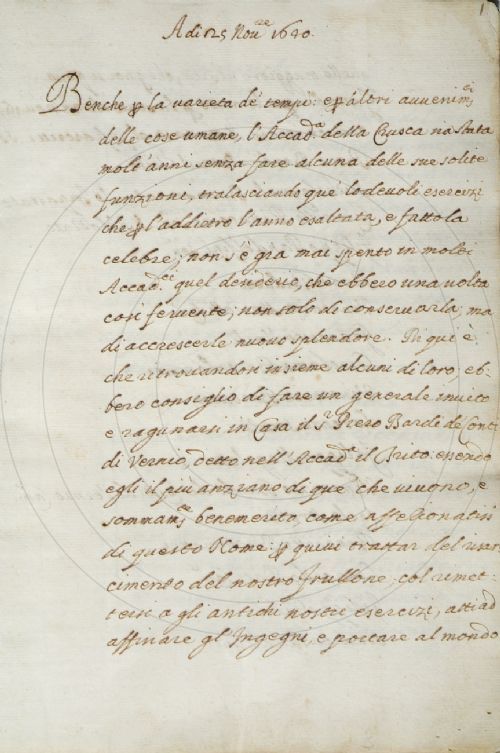 A di 25 Nov.re 1640.
Benche p la varietà de' tempi: e p altri avvenim.ti
delle cose umane, l'Accad.a della Crusca sia stata
molt'anni senza fare alcuna delle sue solite
funzioni, tralasciando que' lodevoli esercizi
che p l'addietro l'anno esaltata, e fattola
celebre; non s'è gia mai spento in molti
Accad.ci quel desiderio, che ebbero una volta
così fervente; non solo di conservarla; ma
di accrescerle nuovo splendore. Di qui è
che ritrovandosi insieme alcuni di loro, eb-
bero consiglio di fare un generale invito
e ragunarsi in Casa il S.r Piero Bardi de Conti
di Vernio, detto nell'Accad.a il Trito essendo
egli il più anziano di que' che vivono, e
sommam.te benemerito, come affezionatiss
di questo Nome: p quivi trattar del
cimento del nostro Frullone, col rimet-
tersi a gli antichi nostri esercizi, atti ad
affinare gl'Ingegni, e poccare al mondo